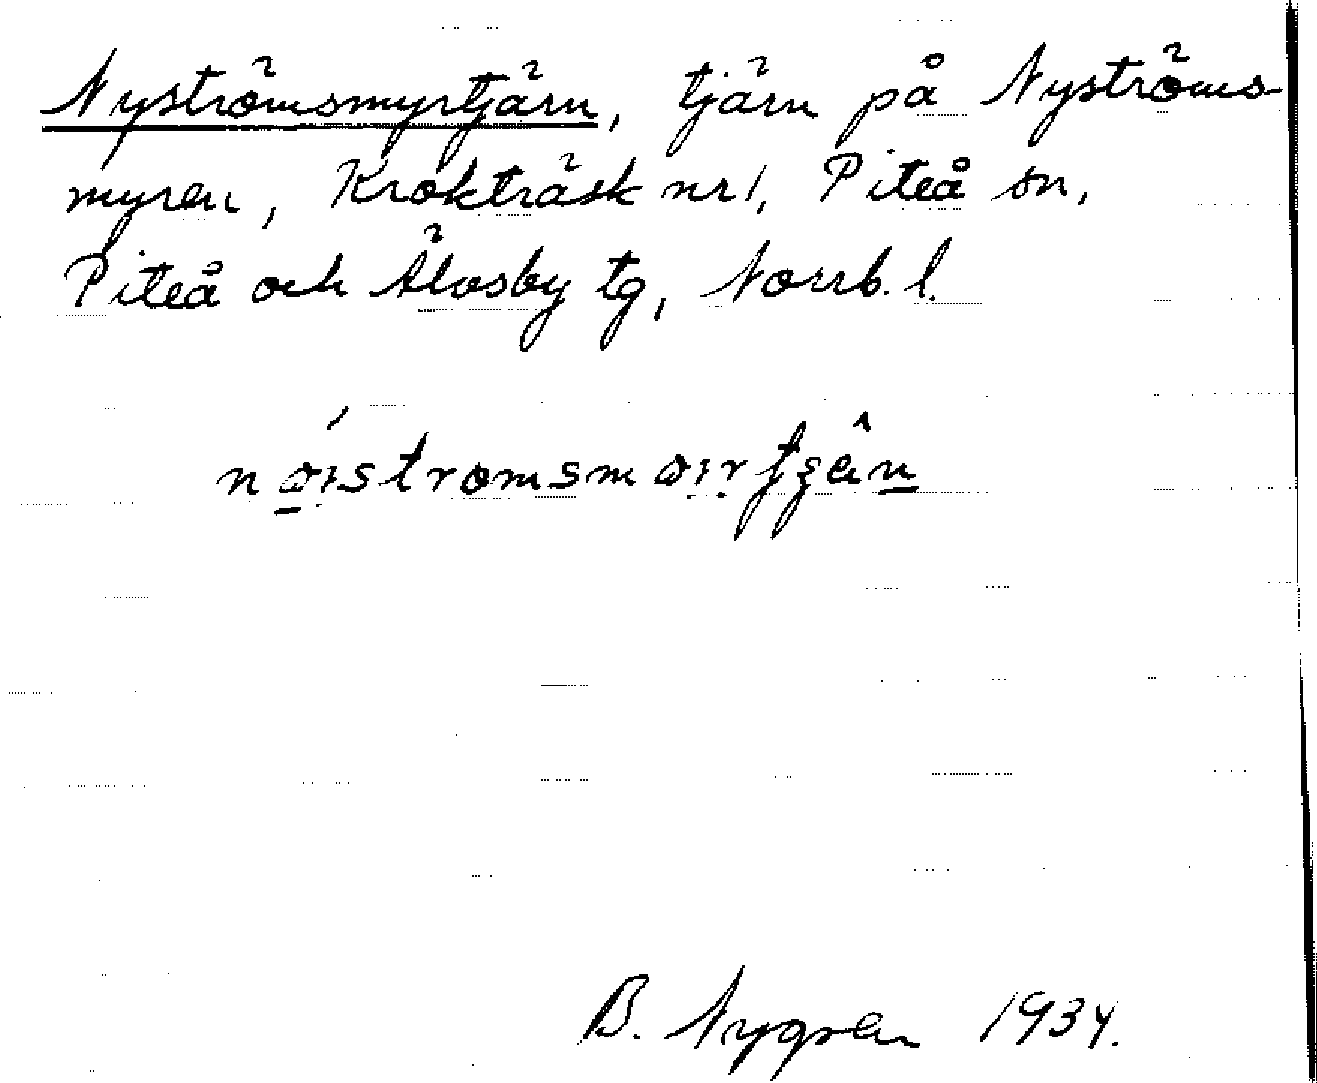 Nyströmsmyrtjärn, tjärn på Nyströms-
myren, Krokträsk nr 1, Piteå sn,
Piteå och Älvsby tg, Norrb. l.
B. Nygren 1934.